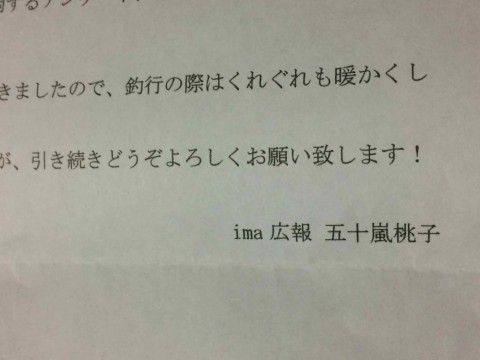 するアンケート
きましたので、釣行の際はくれぐれも暖かくし
が、引き続きどうぞよろしくお願い致します！
ima 広報 五十嵐桃子